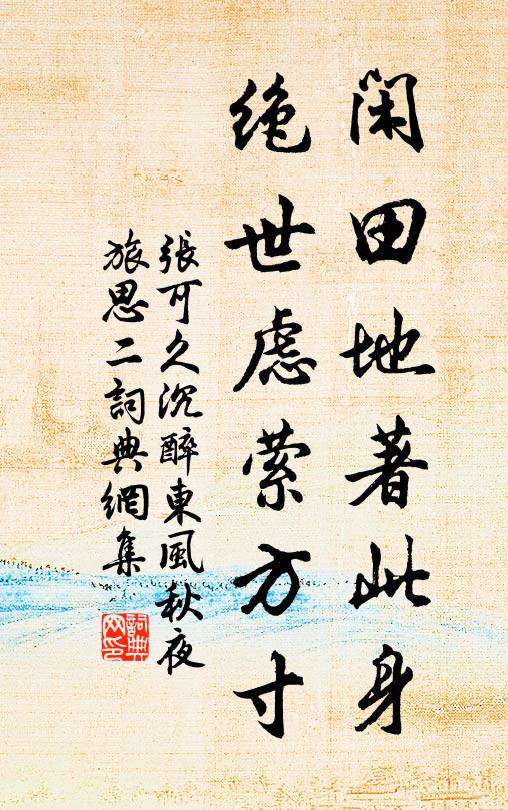 閑田地著此身
絶世慮縈方寸
張可久沉醉東風秋夜
旅思二詞典網集
詞典
网印